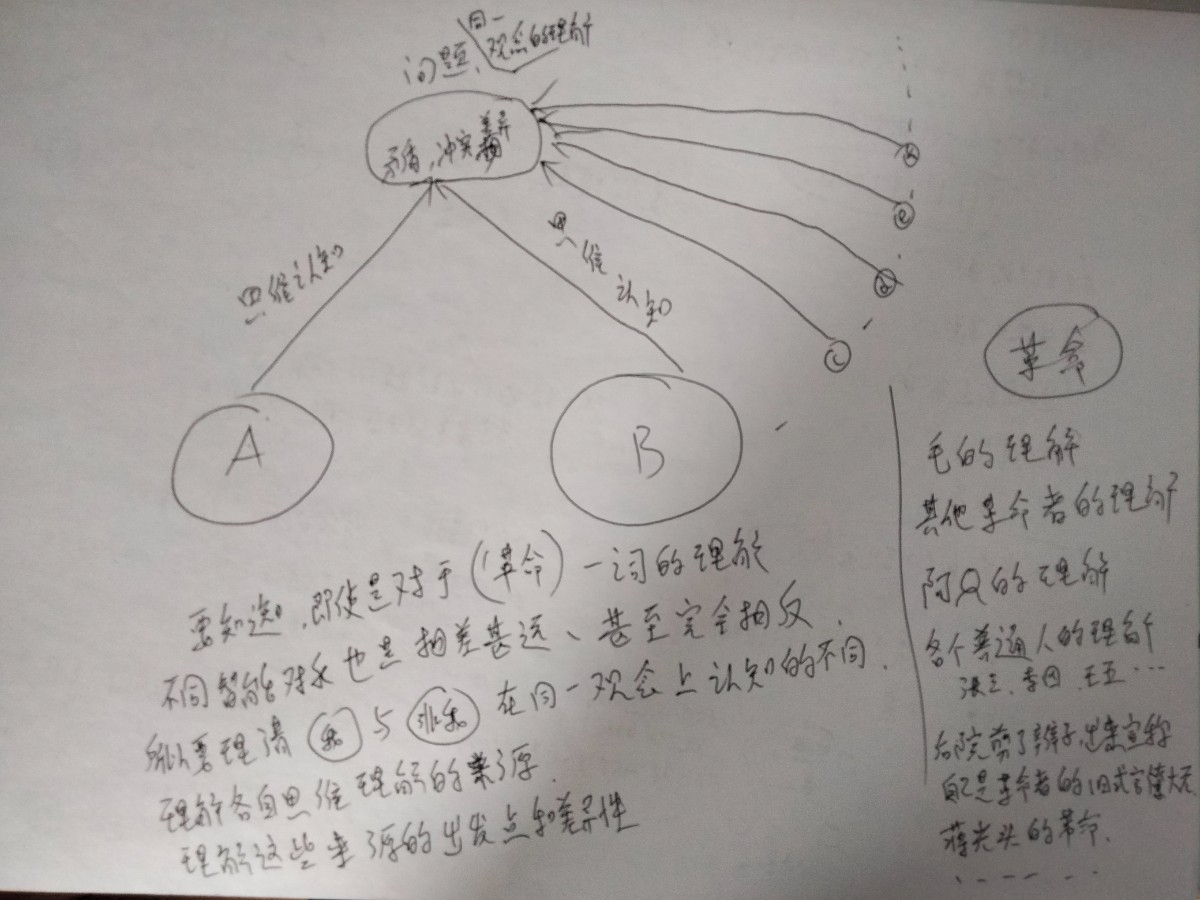 同一
问题、观念的理解
矛盾、冲突 差异
思维认知
思维认知
A
B
C
d
e
革命
毛的理解
其他革命者的理解
阿Q的理解
各个普通人的理解
张三、李四、王五…
后院剪了辫子,出来宣称
自己是革命者的旧式官僚大夫
蒋光头的革命.
要知道,即使是对于(革命)一词的理解
不同智能对象也是相差甚远、甚至完全相反.
所以要理清 我 与 非我 在同一观念上认知的不同.
理解各自思维理解的来源.
理解这些来源的出发点和差异性